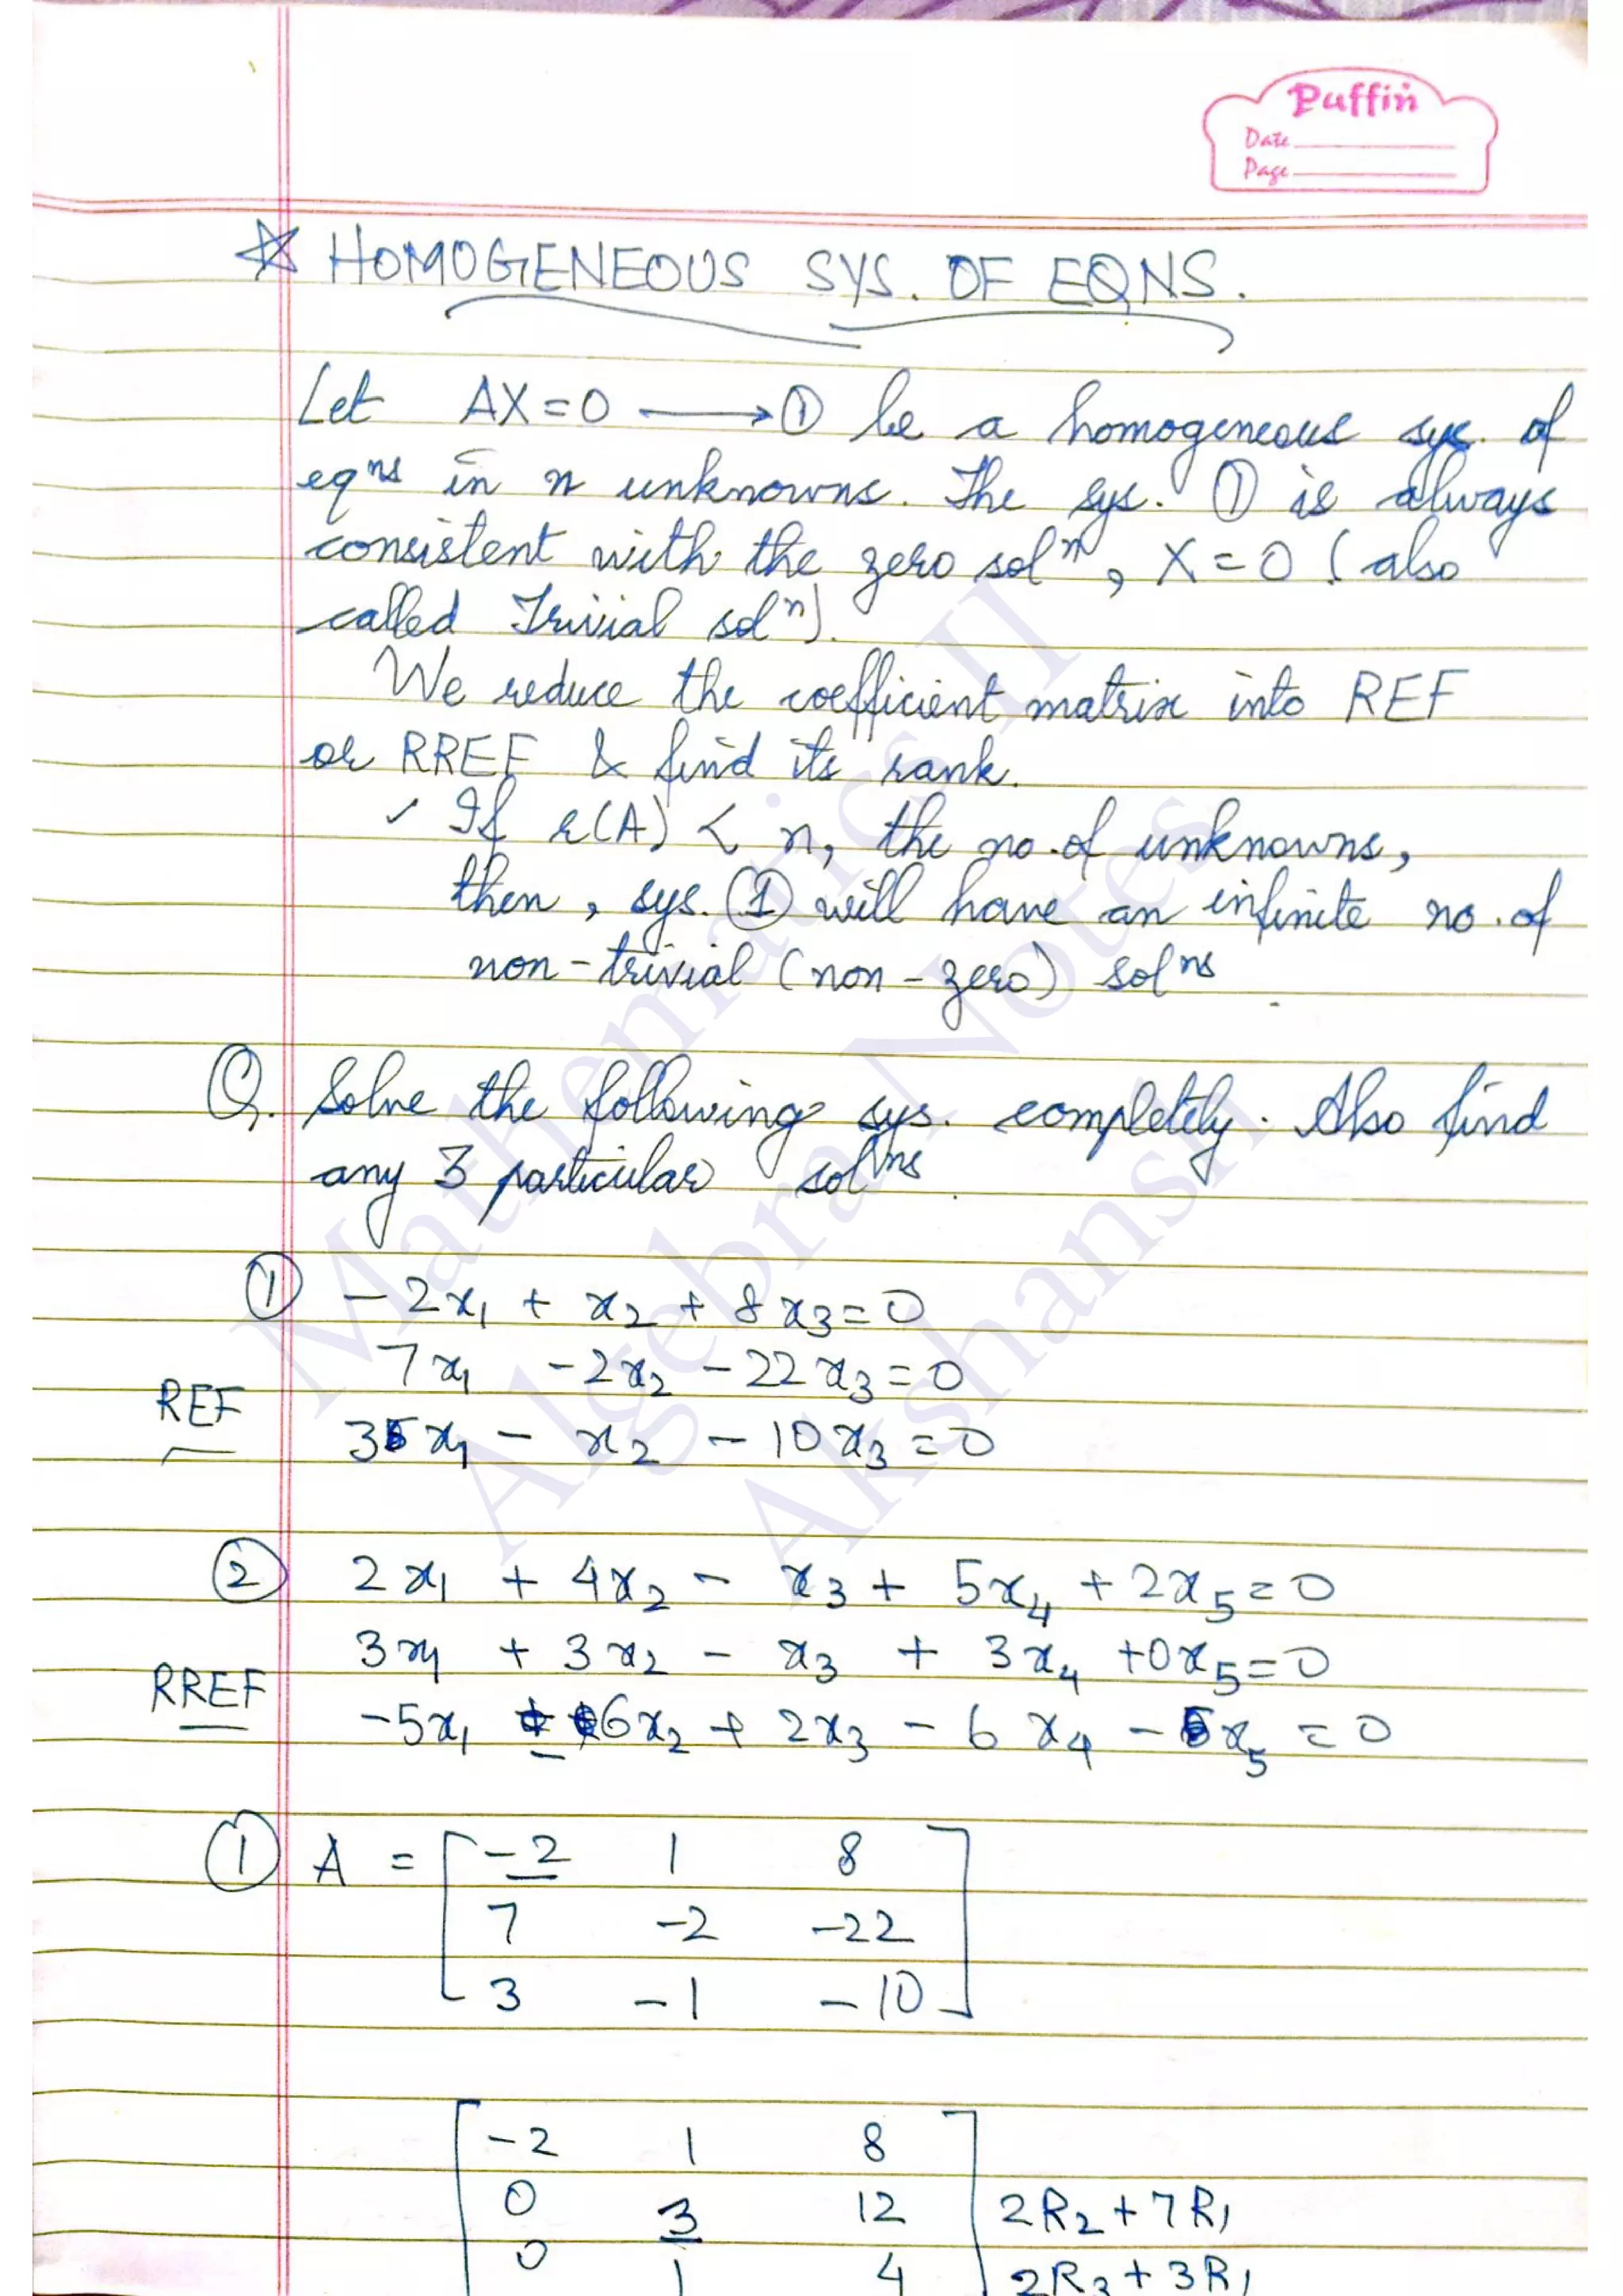 Puffin
Date
Page
☆ HOMOGENEOUS SYS. OF EQNS.
Let AX=0 ⟶ ① be a homogeneous sys. of
eqⁿˢ in n unknowns. The sys. ① is always
consistent with the zero solⁿ, X=0 (also
called Trivial solⁿ).
We reduce the coefficient matrix into REF
or RREF & find its rank.
✓ If r(A) < n, the no. of unknowns,
then, sys. ① will have an infinite no. of
non-trivial (non-zero) solⁿˢ.
Q. Solve the following sys. completely. Also find
any 3 particular solⁿˢ.
① -2x₁ + x₂ + 8x₃=0
7x₁ -2x₂ -22x₃=0
REF
3x₁ - x₂ - 10x₃=0
② 2x₁ + 4x₂ - x₃ + 5x₄ + 2x₅=0
3x₁ + 3x₂ - x₃ + 3x₄ +0x₅=0
RREF
-5x₁ - 6x₂ + 2x₃ - 6x₄ - x₅ = 0
① A = [ -2 1 8
7 -2 -22
3 -1 -10 ]
[ -2 1 8
0 3 12 ] 2R₂+7R₁
0 1 4 2R₃+3R₁
Mathematics II
Algebra Notes
Akshansh